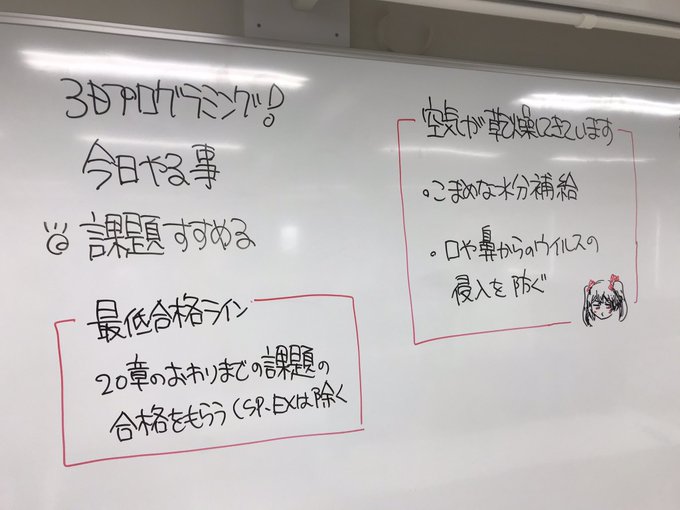 3Dプログラミング!
今日やる事
課題すすめる
最低合格ライン
20章のおわりまでの課題の
合格をもらう(SP、EXは除く
空気が乾燥してきています
・こまめな水分補給
・口や鼻からのウイルスの
侵入を防ぐ